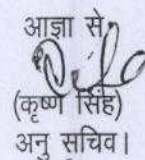 आज्ञा से,
(कृष्ण सिंह)
अनु सचिव।